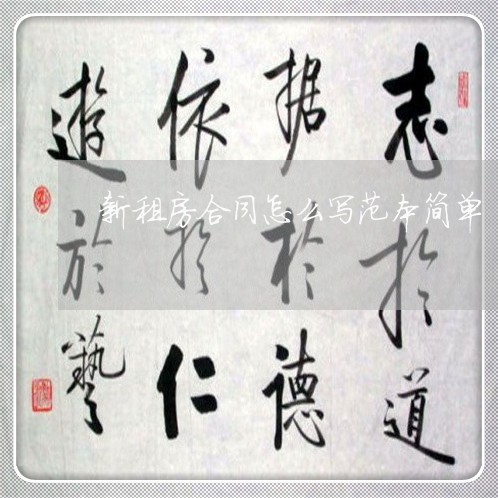 志於道
据於德
依於仁
遊於藝
新租房合同怎么写范本简单